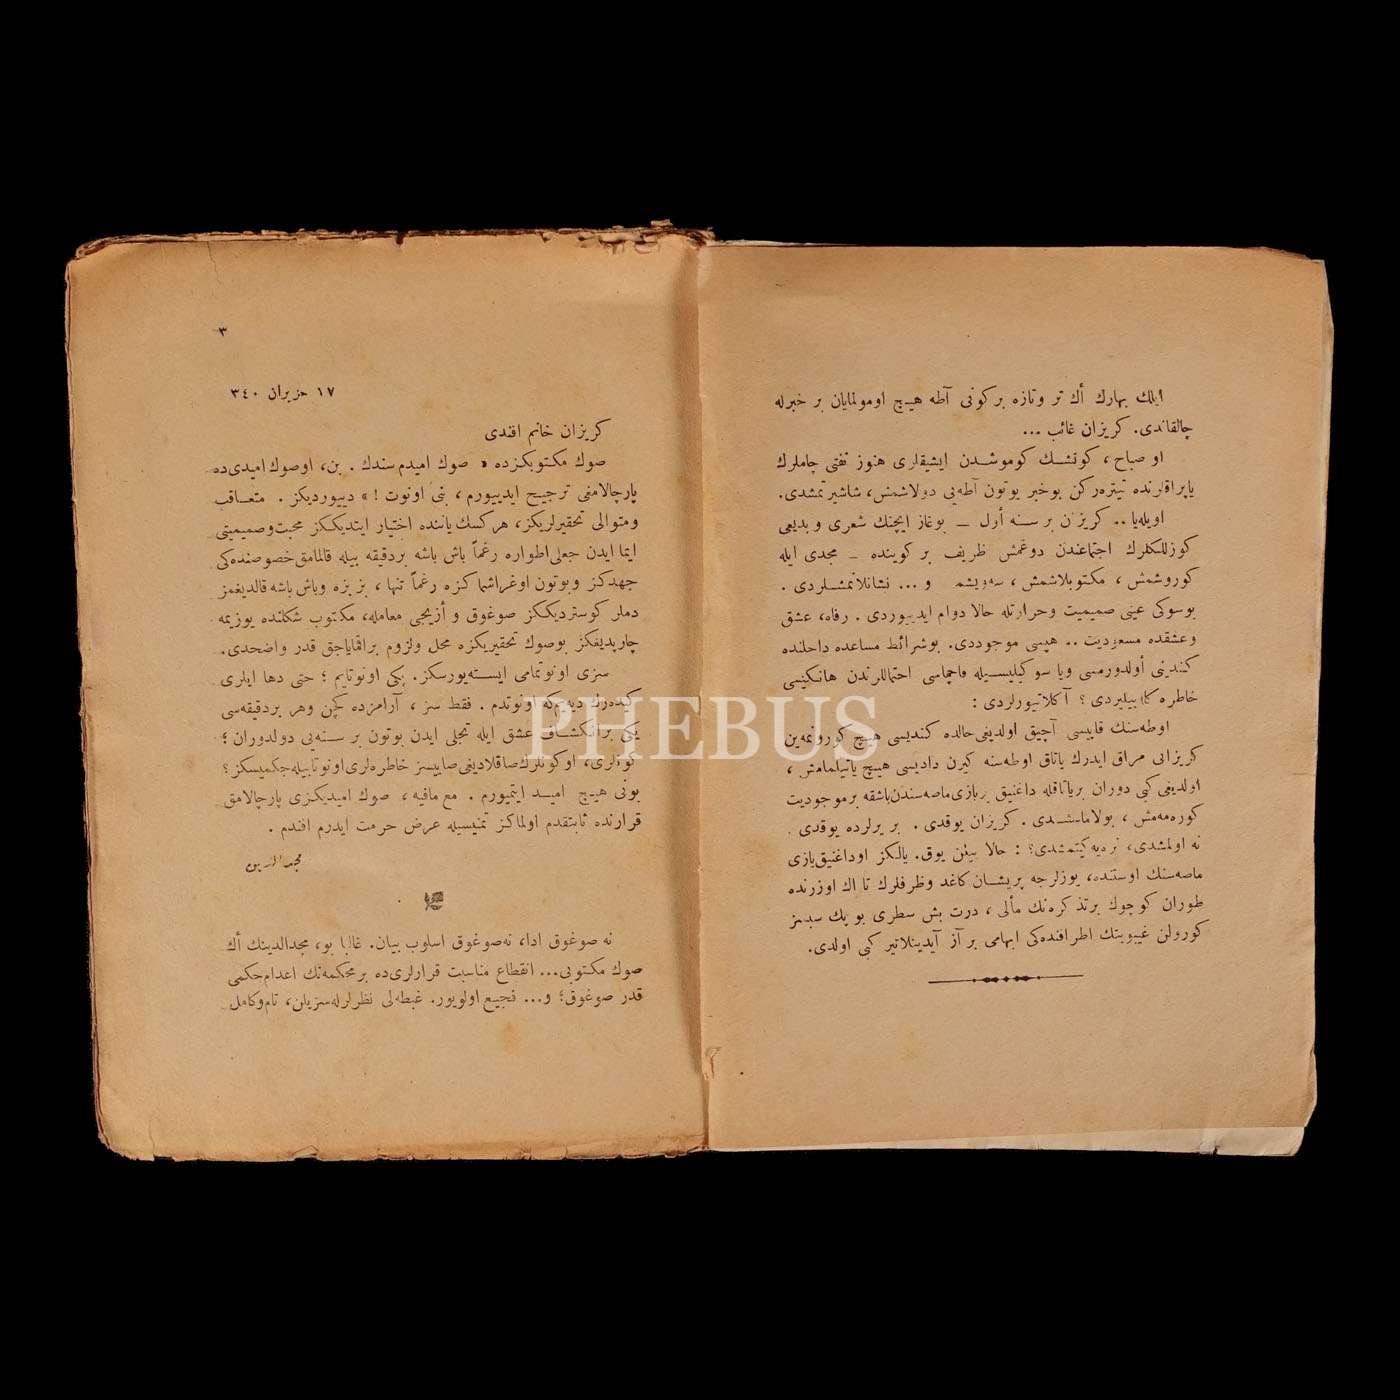 ایلك بهارك أك تر وتازه بر كونی آطه هیچ اومولمایان بر خبرله
چالقاندی. كریزان غائب ...
او صباح ، كونشك كوموشدن ایشیقلری هنوز نفتی چاملرك
یاپراقلرنده تیتره‌ركن بوخبر بوتون آطه‌یی دولاشمش، شاشیرتمشدی.
اویله‌یا .. كریزان بر سنه أول — بوغاز ایچنك شعری و بدیعی
كوزللكلرك اجتماعندن دوغمش ظریف بر كوینده — مجدی ایله
كوروشمش ، مكتوبلاشمش ، سه‌ویشمش و ... نشانلانمشلردی .
بوسوكی عینی صمیمیت وحرارتله حالا دوام ایدییوردی . رفاه، عشق
وعشقده مسعودیت .. هپسی موجوددی. بوشرائط مساعده داخلنده
كندینی أولدورمسی ویا سوكیلیسیله قاچماسی احتماللرندن هانكیسی
خاطره كله بیلیردی ؟ آكلاتیورلردی :
اوطه‌سنك قاپیسی آچیق اولدیغی حالده كندیسی هیچ كورونمه‌ین
كریزانی مراق ایدرك یاتاق اوطه‌سنه كیرن دادیسی هیچ یاتیلمامش ،
اولدیغی كبی دوران بریاتاقله داغنیق بر یازی ماصه‌سندن باشقه بر موجودیت
كوره‌مه‌مش ، بولامامشدی . كریزان یوقدی . بر یرلرده یوقدی .
نه اولمشدی، نره‌یه كیتمشدی؟ : حالا بیلن یوق. یالكز اوداغنیق یازی
ماصه‌سنك اوستنده، یوزلرجه پریشان كاغد وظرفلرك تا اك اوزرنده
طوران كوچوك بر تذكره‌نك مألی ، درت بش سطری بویوك سبسز
كورولن غیبوبتك اطرافنده‌كی ابهامی بر آز آیدینلاتیر كبی اولدی.
٣
١٧ حزیران ٣٤٠
كریزان خانم افندی
صوك مكتوبكزده « صوك امیدم سندك . بن، اوصوك امیدی‌ده
پارچالامغی ترجیح ایدییورم ، بنی اونوت ! » دییوردیكز . متعاقب
ومتوالی تحقیرلریكز، هركسك یاننده اختیار ایتدیككز محبت وصمیمیتی
ایما ایدن جعلی اطواره رغماً باش باشه بر دقیقه بیله قالمامق خصوصنده‌كی
جهدكز وبوتون اوغراشماكزه رغماً تنها ، بز بزه وباش باشه قالدیغمز
دملر كوستردیككز صوغوق و أزیجی معامله، مكتوب شكلنده یوزیمه
چارپدیغكز بوصوك تحقیریكزه محل ولزوم براقمایاجق قدر واضحدی.
سزی اونوتمامی ایسته‌یورسكز. پكی اونوتایم ؛ حتی دها ایلری
كیده‌رك دیه‌یم‌كه اونوتدم . فقط سز ، آرامزده كچن وهر بردقیقه‌سی
یكی بر انكشاف عشق ایله تجلی ایدن بوتون بر سنه‌یی دولدوران ؛
كونلری، اوكونلرك صاقلادیغی صاییسز خاطره‌لری اونوتابیله‌جكمیسكز ؟
بونی هیچ امید ایتمیورم . مع مافیه ، صوك امیدیكزی پارچالامق
قرارنده ثابتقدم اولماكز تمنیسیله عرض حرمت ایدرم افندم .
مجدالدین
نه صوغوق ادا، نه‌صوغوق اسلوب بیان. غالبا بو، مجدالدینك أك
صوك مكتوبی... انقطاع مناسبت قرارلری‌ده بر محكمه‌نك اعدام حكمی
قدر صوغوق؛ و... فجیع اولویور. غبطه‌لی نظرلرله‌سزیلن، تام‌وكامل
PHEBUS